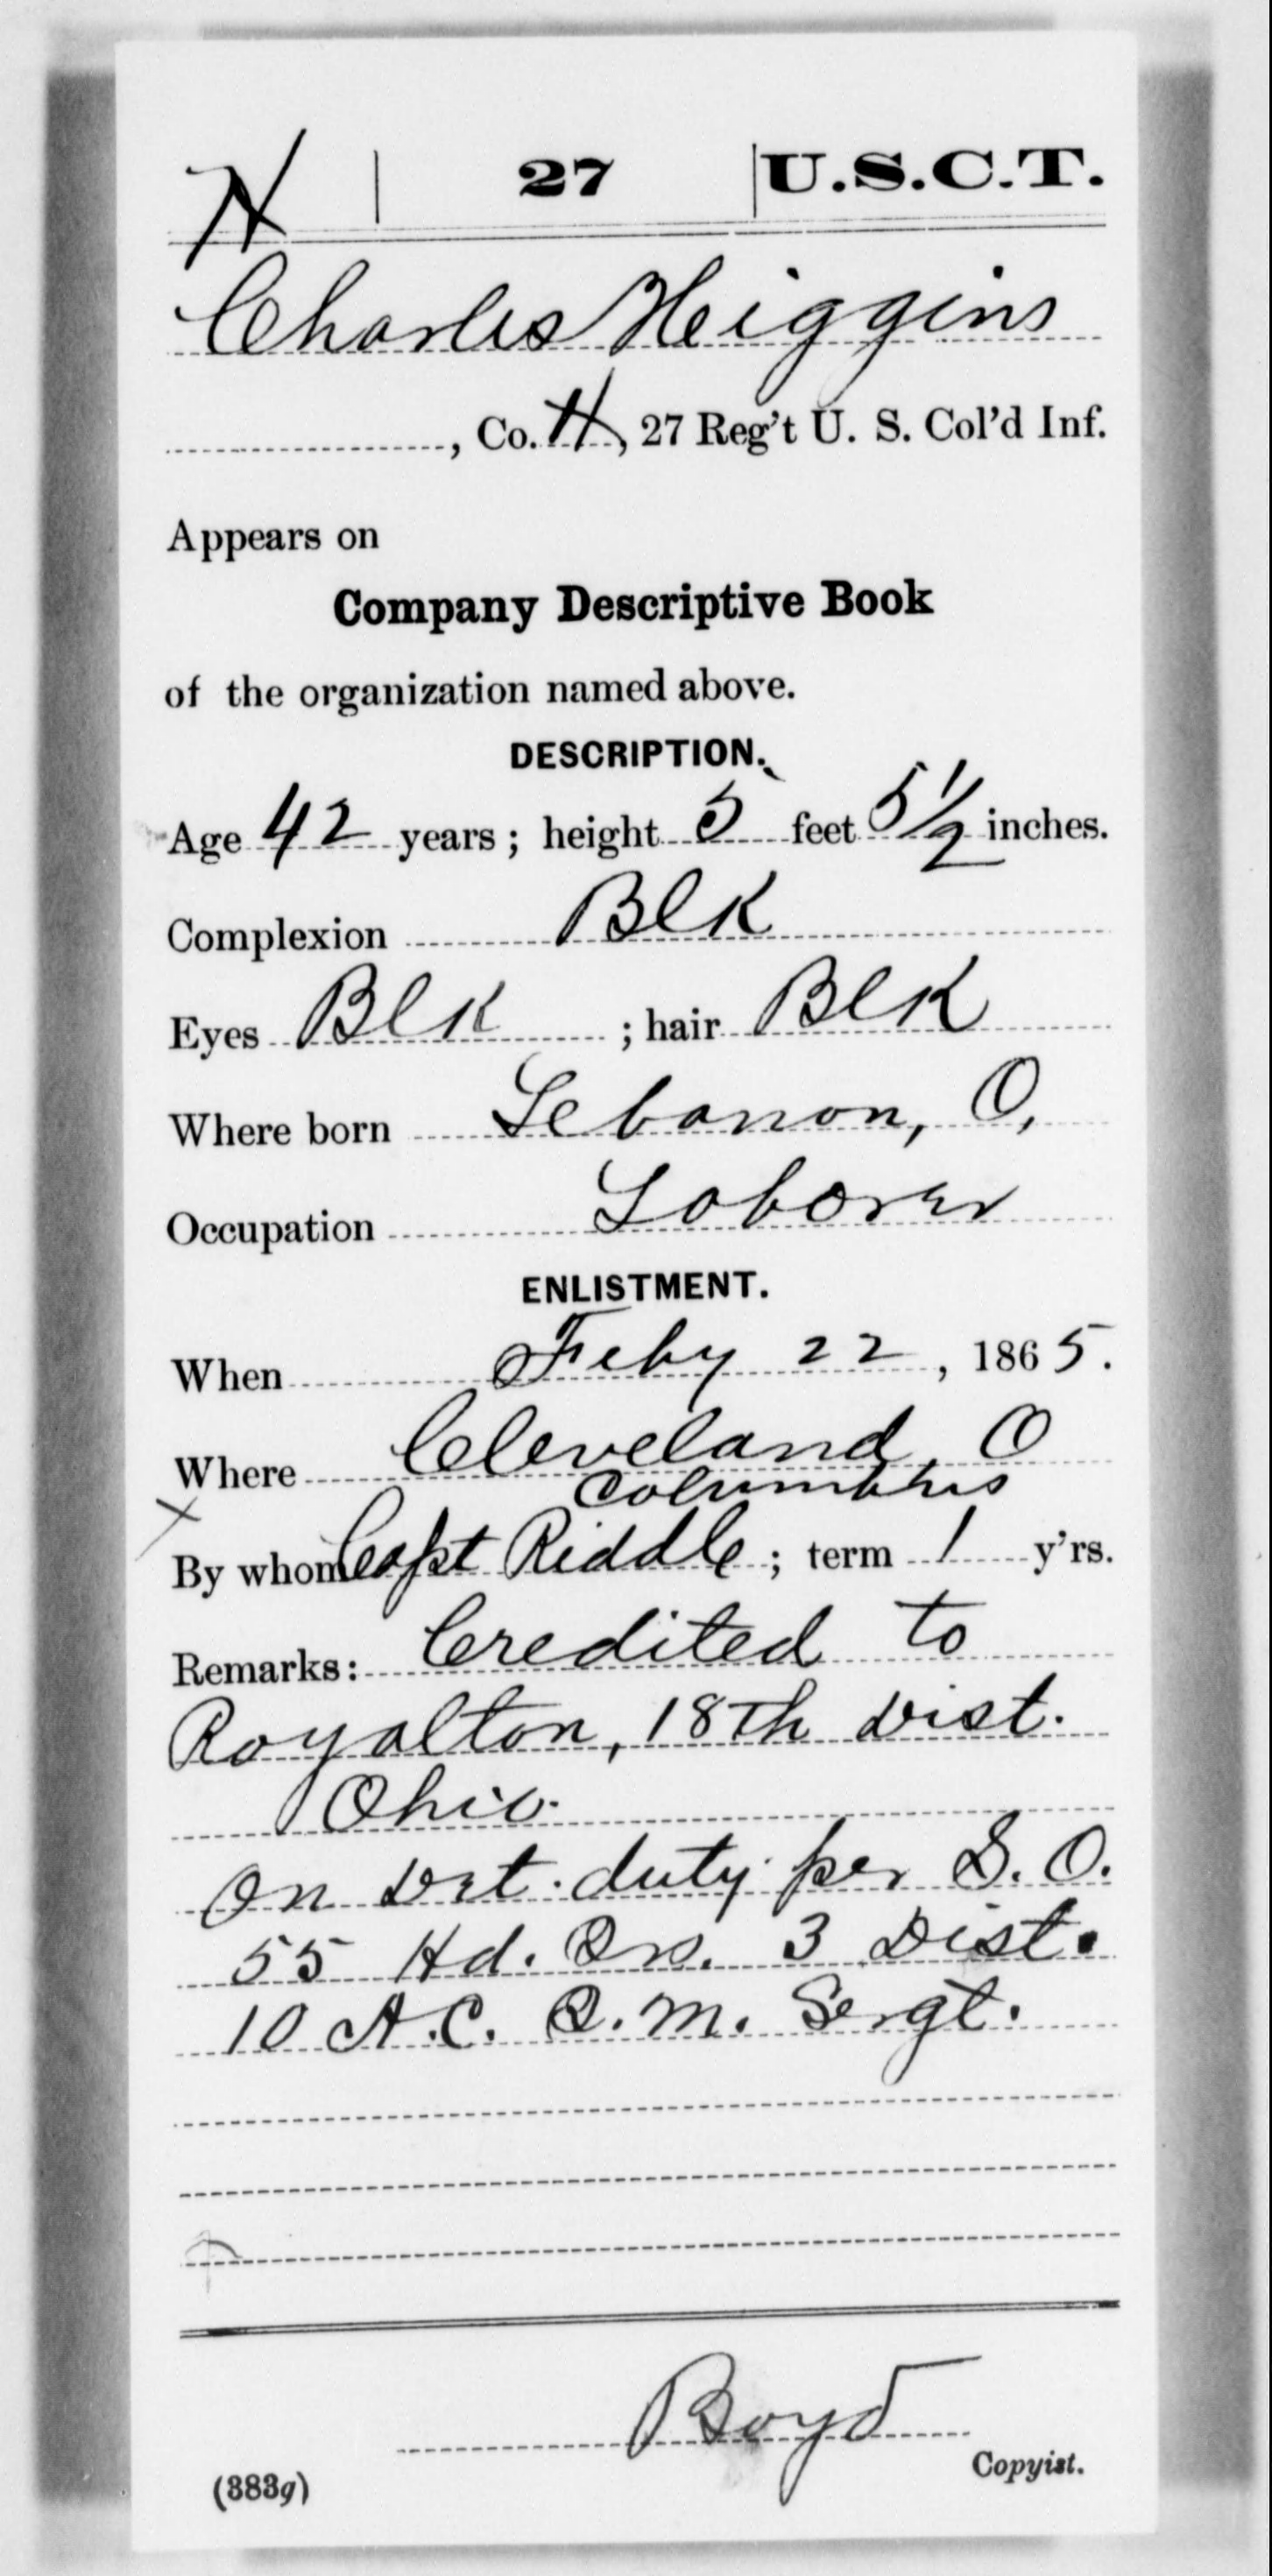 H | 27 | U.S.C.T.
Charles Heiggins
, Co. H, 27 Reg't U. S. Col'd Inf.
Appears on
Company Descriptive Book
of the organization named above.
DESCRIPTION.
Age 42 years; height 5 feet 5 1/2 inches.
Complexion Blk
Eyes Blk ; hair Blk
Where born Lebanon, O,
Occupation Laborer
ENLISTMENT.
When Feby 22, 1865.
Where Cleveland, O
Columbus
X
By whom Capt Riddle; term 1 y'rs.
Remarks: Credited to
Royalton, 18th Dist.
Ohio.
On Det. duty per S. O.
55 Hd. Qrs. 3 Dist.
10 A.C. Q.M. Sergt.
Boyd
Copyist.
(383g)